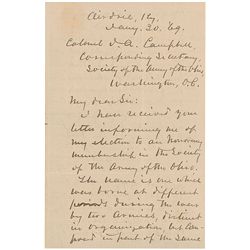 Airdrie, Ky.
Jany. 30. '89.
Colonel J. A. Campbell,
Corresponding Secretary,
Society of the Army of the Ohio,
Washington, D.C.
My dear Sir:
I have received your
letter informing me of
my election to an Honorary
membership in the Society
of the Army of the Ohio.
The name is one which
was borne at different
periods during the war
by two Armies, distinct
in organization, but com-
posed in part of the same